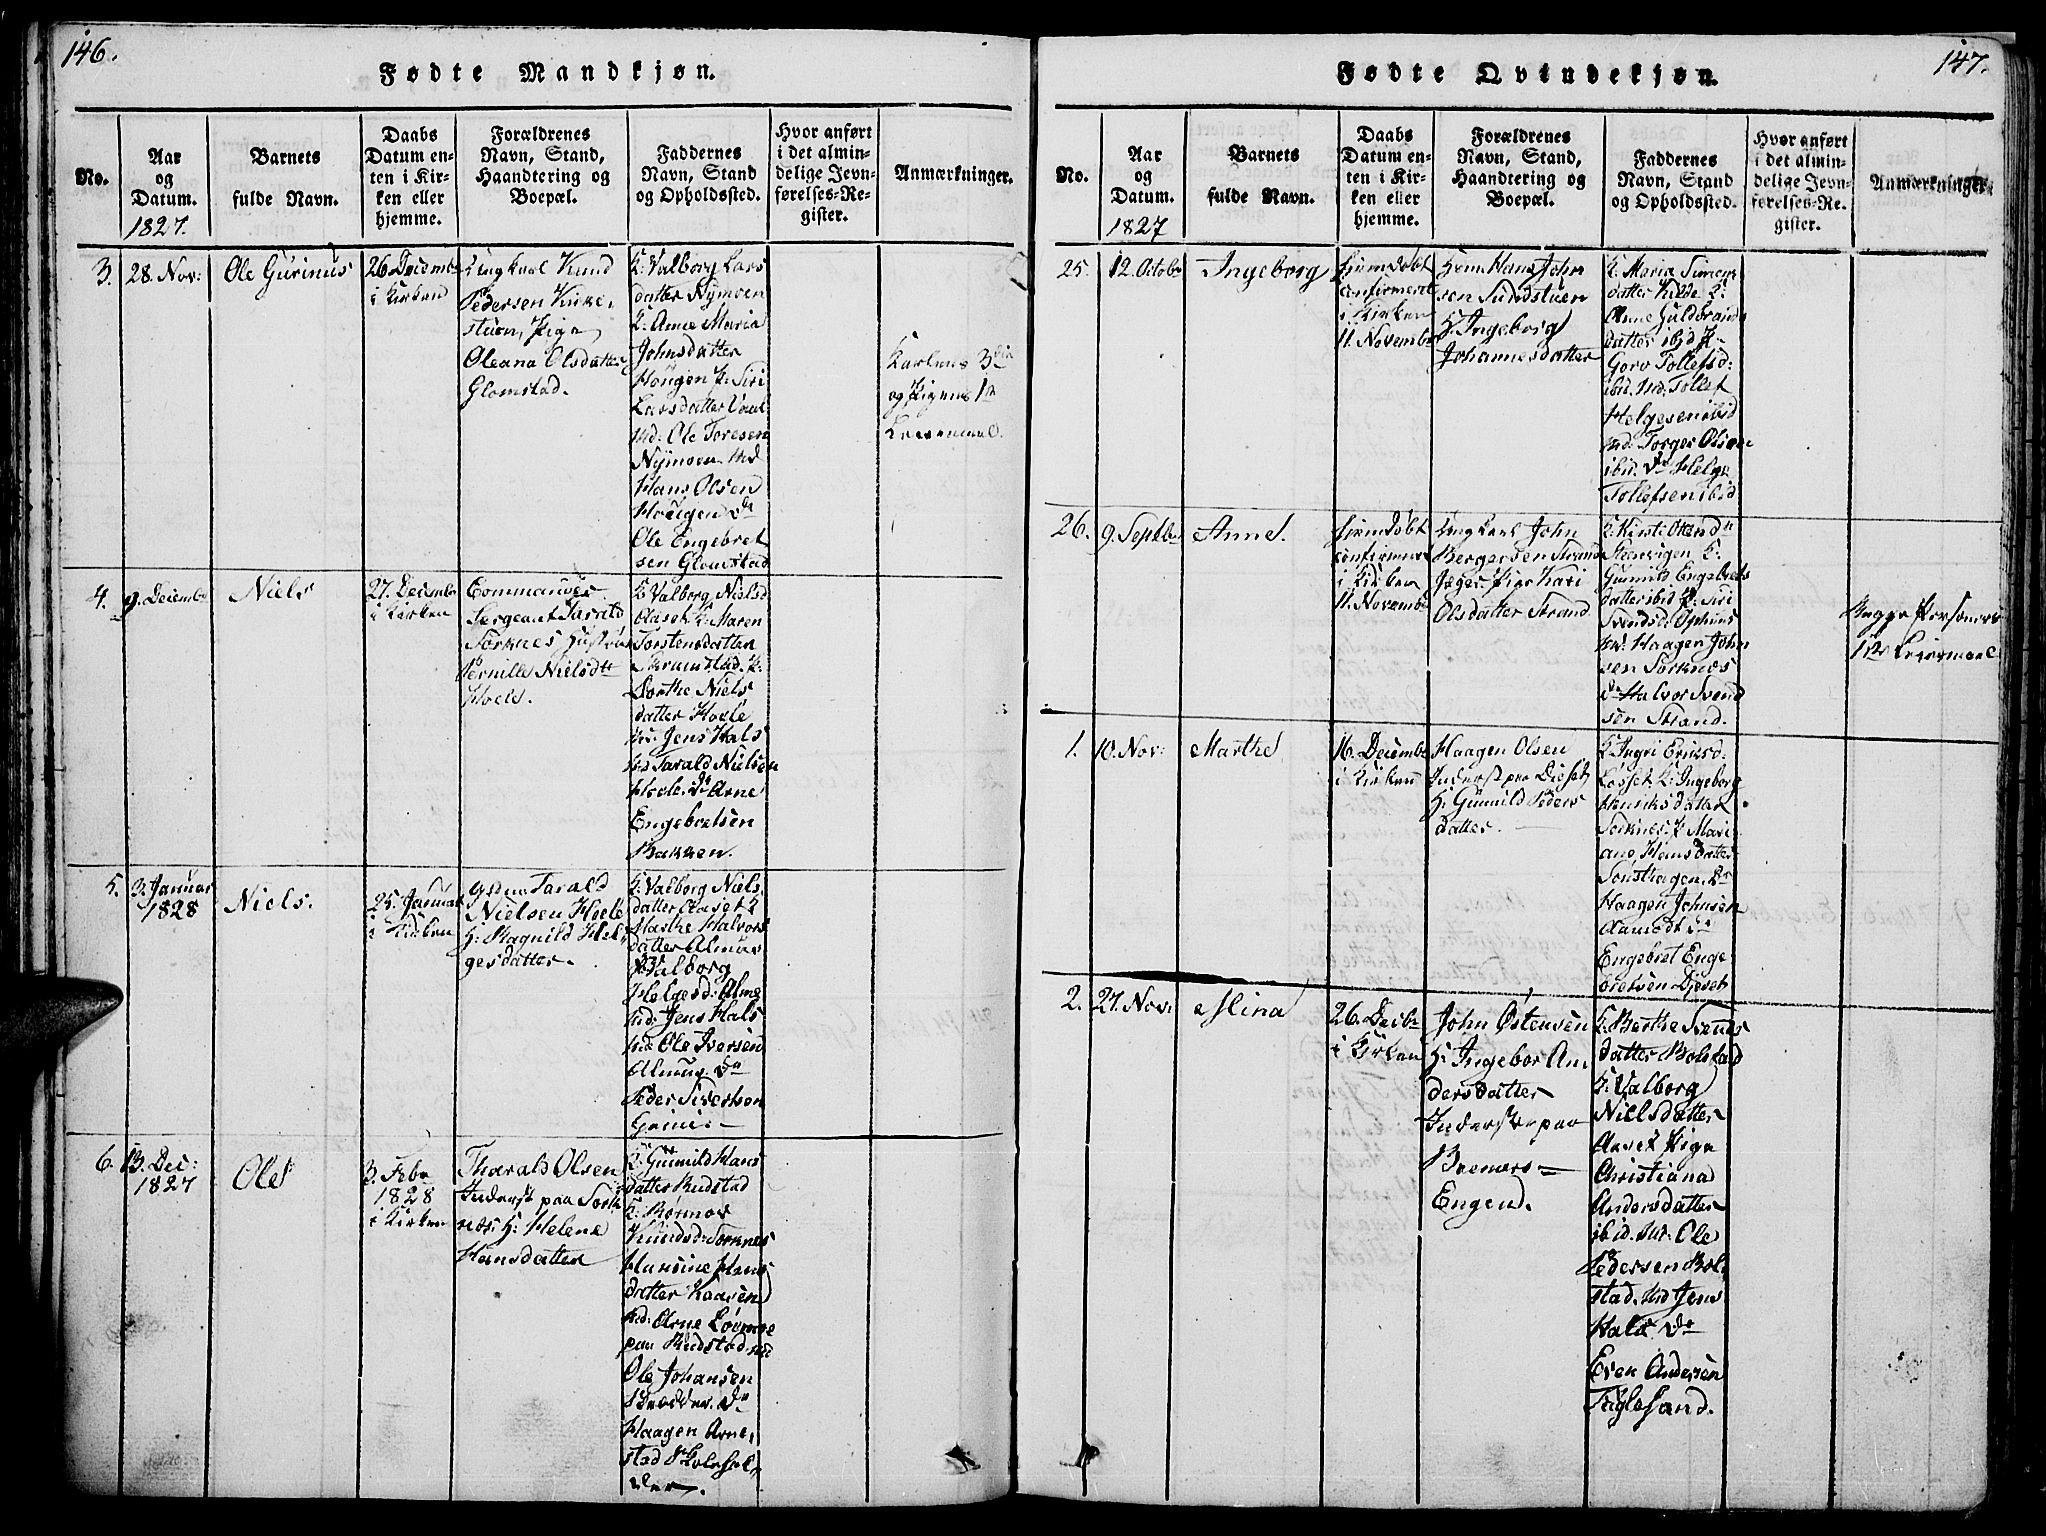 146.
Fødte Mandkjøn.
No.
Aar
og
Datum.
1827.
Barnets
fulde Navn.
Daabs
Datum en-
ten i Kir-
ken eller
hjemme.
Forældrenes
Navn, Stand,
Haandtering og
Boepæl.
Faddernes
Navn, Stand
og Opholdssted.
Hvor anført
i det almin-
delige Jevn-
førelses-Re-
gister.
Anmærkninger.
3.
28. Nov:
Ole Gurinus
26 Decembr
i Kirken
Ungkarl Knud
Pedersen Kirke-
stuen, Pige
Oleana Olsdatter
Glomstad.
K: Valborg Lars
datter Nÿmoen
K: Anne Maria
Johnsdatter
Hougen P: Siri
Larsdatter
Md: Ole Toresen
Nÿmoen Md
Hans Olsen
Hougen Dr
Ole Engebret
sen Glomstad
Karlens 3die
og Pigens 1ste
Leiermaal.
4.
9. Decembr
Niels
27. Decembr
i Kirken
Commandeer
Sergeant Tarald
Sorknes Hustrue
Pernille Nielsdtr
Hoele.
K Valborg Nielsd
Aaset K: Maren
Torstensdatter
Skramstad. P:
Dorthe Niels
datter Hoele
Md: Jens Hals
Md Tarald Nielsen
Hoele. Dr Arne
Engebretsen
Bakken.
5.
3. Januar
1828
Niels.
25. Januar
i Kirken
Tarald
Nielsen Hoele
H: Ragnild Hel-
gesdatter.
K: Valborg Niels
datter Aaset K
Marthe Halvors
datter Almus
P Valborg
Helgesd: Alme
Md: Jens Hals
Md Ole Iversen
Almus. Dr
Peder Sivertsen
6.
13. Dec:
1827
Ole
3. Febr
1828
i Kirken
Tharald Olsen
Inderst paa Sork
nes. H: Helene
Hansdatter
K: Gunnild Hans
datter Rudstad
K:
Knudsd: Sorknes
Hansine Hans
datter Kaasen
Md: Arne
paa Rudstad Md
Ole Johansen
Dr
Haagen Arne-
stad Skolehol-
der.
147.
Fødte Qvindekjøn.
No.
Aar
og
Datum.
1827
Barnets
fulde Navn.
Daabs
Datum en-
ten i Kir-
ken eller
hjemme.
Forældrenes
Navn, Stand,
Haandtering og
Boepæl.
Faddernes
Navn, Stand
og Opholdssted.
Hvor anført
i det almin-
delige Jevn-
førelses-Re-
gister.
Anmærkninger.
25.
12. Octobr
Ingeborg
hjemdøbt
confirmeret
i Kirken
11. Novembr
Hans John
sen Sundstuen
H. Ingeborg
Johannesdatter
K. Maria Simens
datter Kilde K:
Anne Guldbrands
datter ibid P
Goro Tollefsd:
ibid. Md: Tollef
Helgesen ibid
Md: Torger Olsen
ibid. Dr Helge
Tollefsen ibid
26.
9. Septbr
Anne.
hjemdøbt
confirmeret
i Kirken
11. Novembr
Ungkarl John
Bergersen Strand
Jæger Pige Kari
Olsdatter Strand
K: Kirsti
Steenvigen K:
Gunnild Engebrets
datter ibid P: Siri
Svendsd: Ophuus
Md. Haagen John
sen Sorknes
Dr Halvor Svend
sen Strand.
Begge Personers
1ste Leiermaal
1.
10. Nov:
Marthe
16. Decembr
i Kirken
Haagen Olsen
Inderst paa Dieset
H: Gunnild Peders
datter.
K: Ingri Eriksd:
Losset K: Ingeborg
Henriksdatter
Sorknes P. Mari-
ane Hansdatter
Sønskagen. Dr
Haagen Johnsen
Aamodt Dr
Engebret Enge
bretsen Djeset
2.
27. Nov:
Mina
26. Decbr
i Kirken
John Østensen
H: Ingebor An-
dersdatter
Inderster paa
Bremers-
Engen.
K: Berthe Svends
datter Bolstad
K: Valborg
Nielsdatter
Aaset Pige
Christiana
Andersdatter
ibid. Md: Ole
Pedersen Bol-
stad. Md Jens
Hals Dr
Even Andersen
Fuglesand.